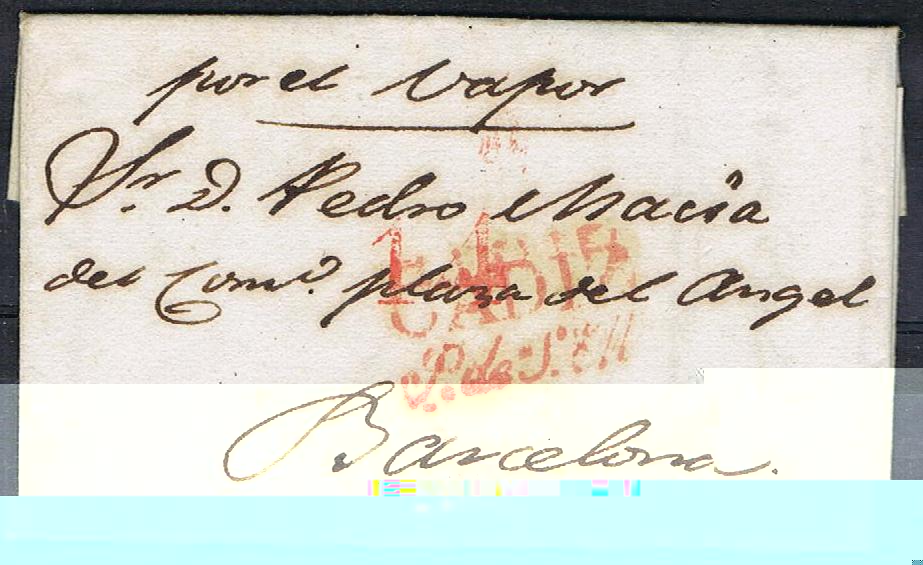 por el vapor
Sr. D. Pedro Macia
del Comº. plaza del Angel
CADIZ
Barcelona.